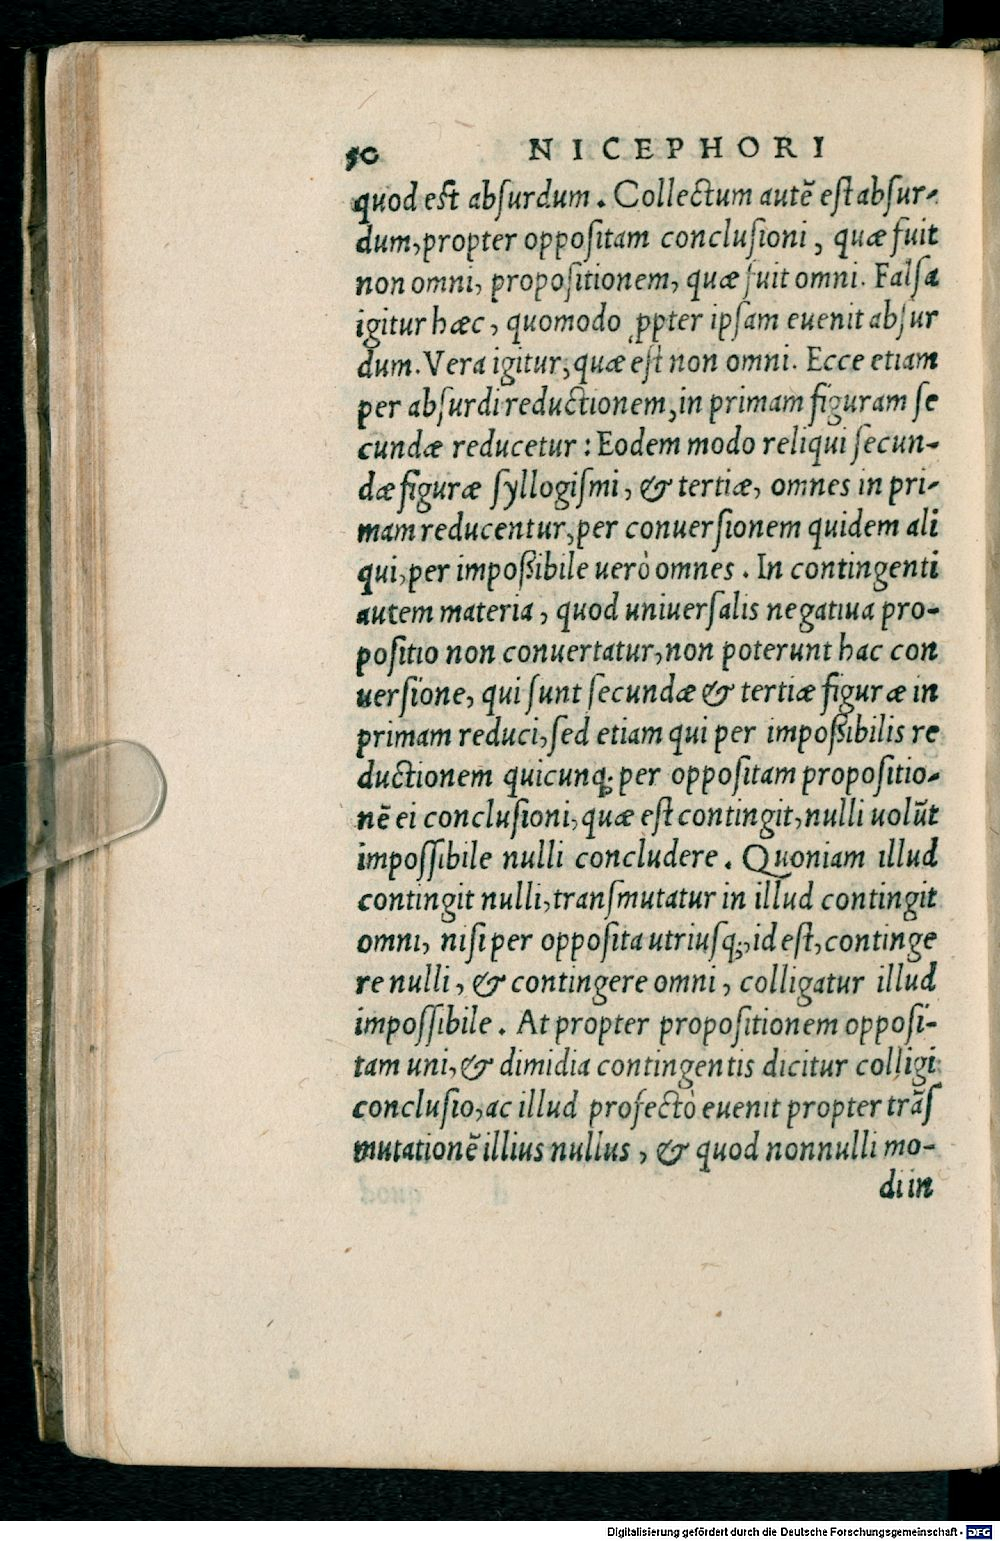 50 NICEPHORI
quod est absurdum. Collectum autẽ est absur-
dum, propter oppositam conclusioni, quæ fuit
non omni, propositionem, quæ fuit omni. Falsa
igitur hæc, quomodo ꝓpter ipsam euenit absur
dum. Vera igitur, quæ est non omni. Ecce etiam
per absurdi reductionem, in primam figuram se
cundæ reducetur: Eodem modo reliqui secun-
dæ figuræ syllogismi, & tertiæ, omnes in pri-
mam reducentur, per conuersionem quidem ali
qui, per impoßibile uerò omnes. In contingenti
autem materia, quod uniuersalis negatiua pro-
positio non conuertatur, non poterunt hac con
uersione, qui sunt secundæ & tertiæ figuræ in
primam reduci, sed etiam qui per impoßibilis re
ductionem quicunq; per oppositam propositio-
nẽ ei conclusioni, quæ est contingit, nulli uolũt
impossibile nulli concludere. Quoniam illud
contingit nulli, transmutatur in illud contingit
omni, nisi per opposita utriusq;, id est, continge
re nulli, & contingere omni, colligatur illud
impossibile. At propter propositionem opposi-
tam uni, & dimidia contingentis dicitur colligi
conclusio, ac illud profectò euenit propter trãs
mutationẽ illius nullus, & quod nonnulli mo-
di in
Digitalisierung gefördert durch die Deutsche Forschungsgemeinschaft - DFG